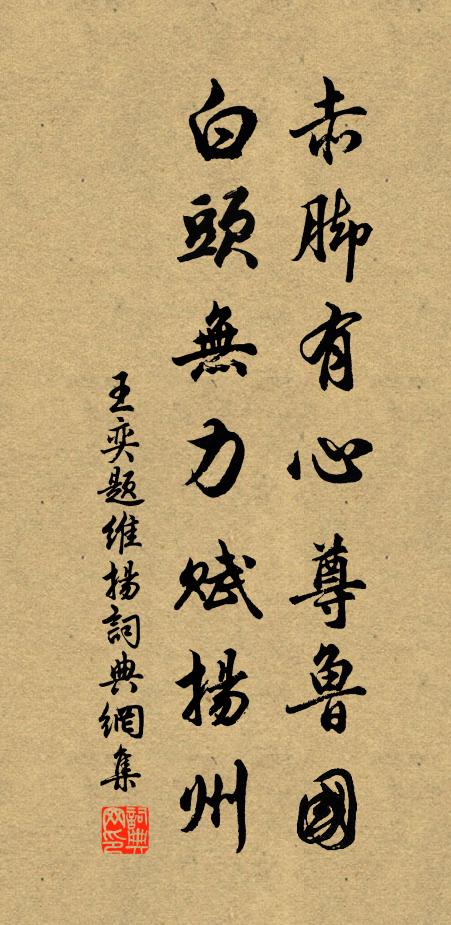 赤脚有心尊魯國
白頭無力賦揚州
王奕題維揚詞典網集
詞典網印